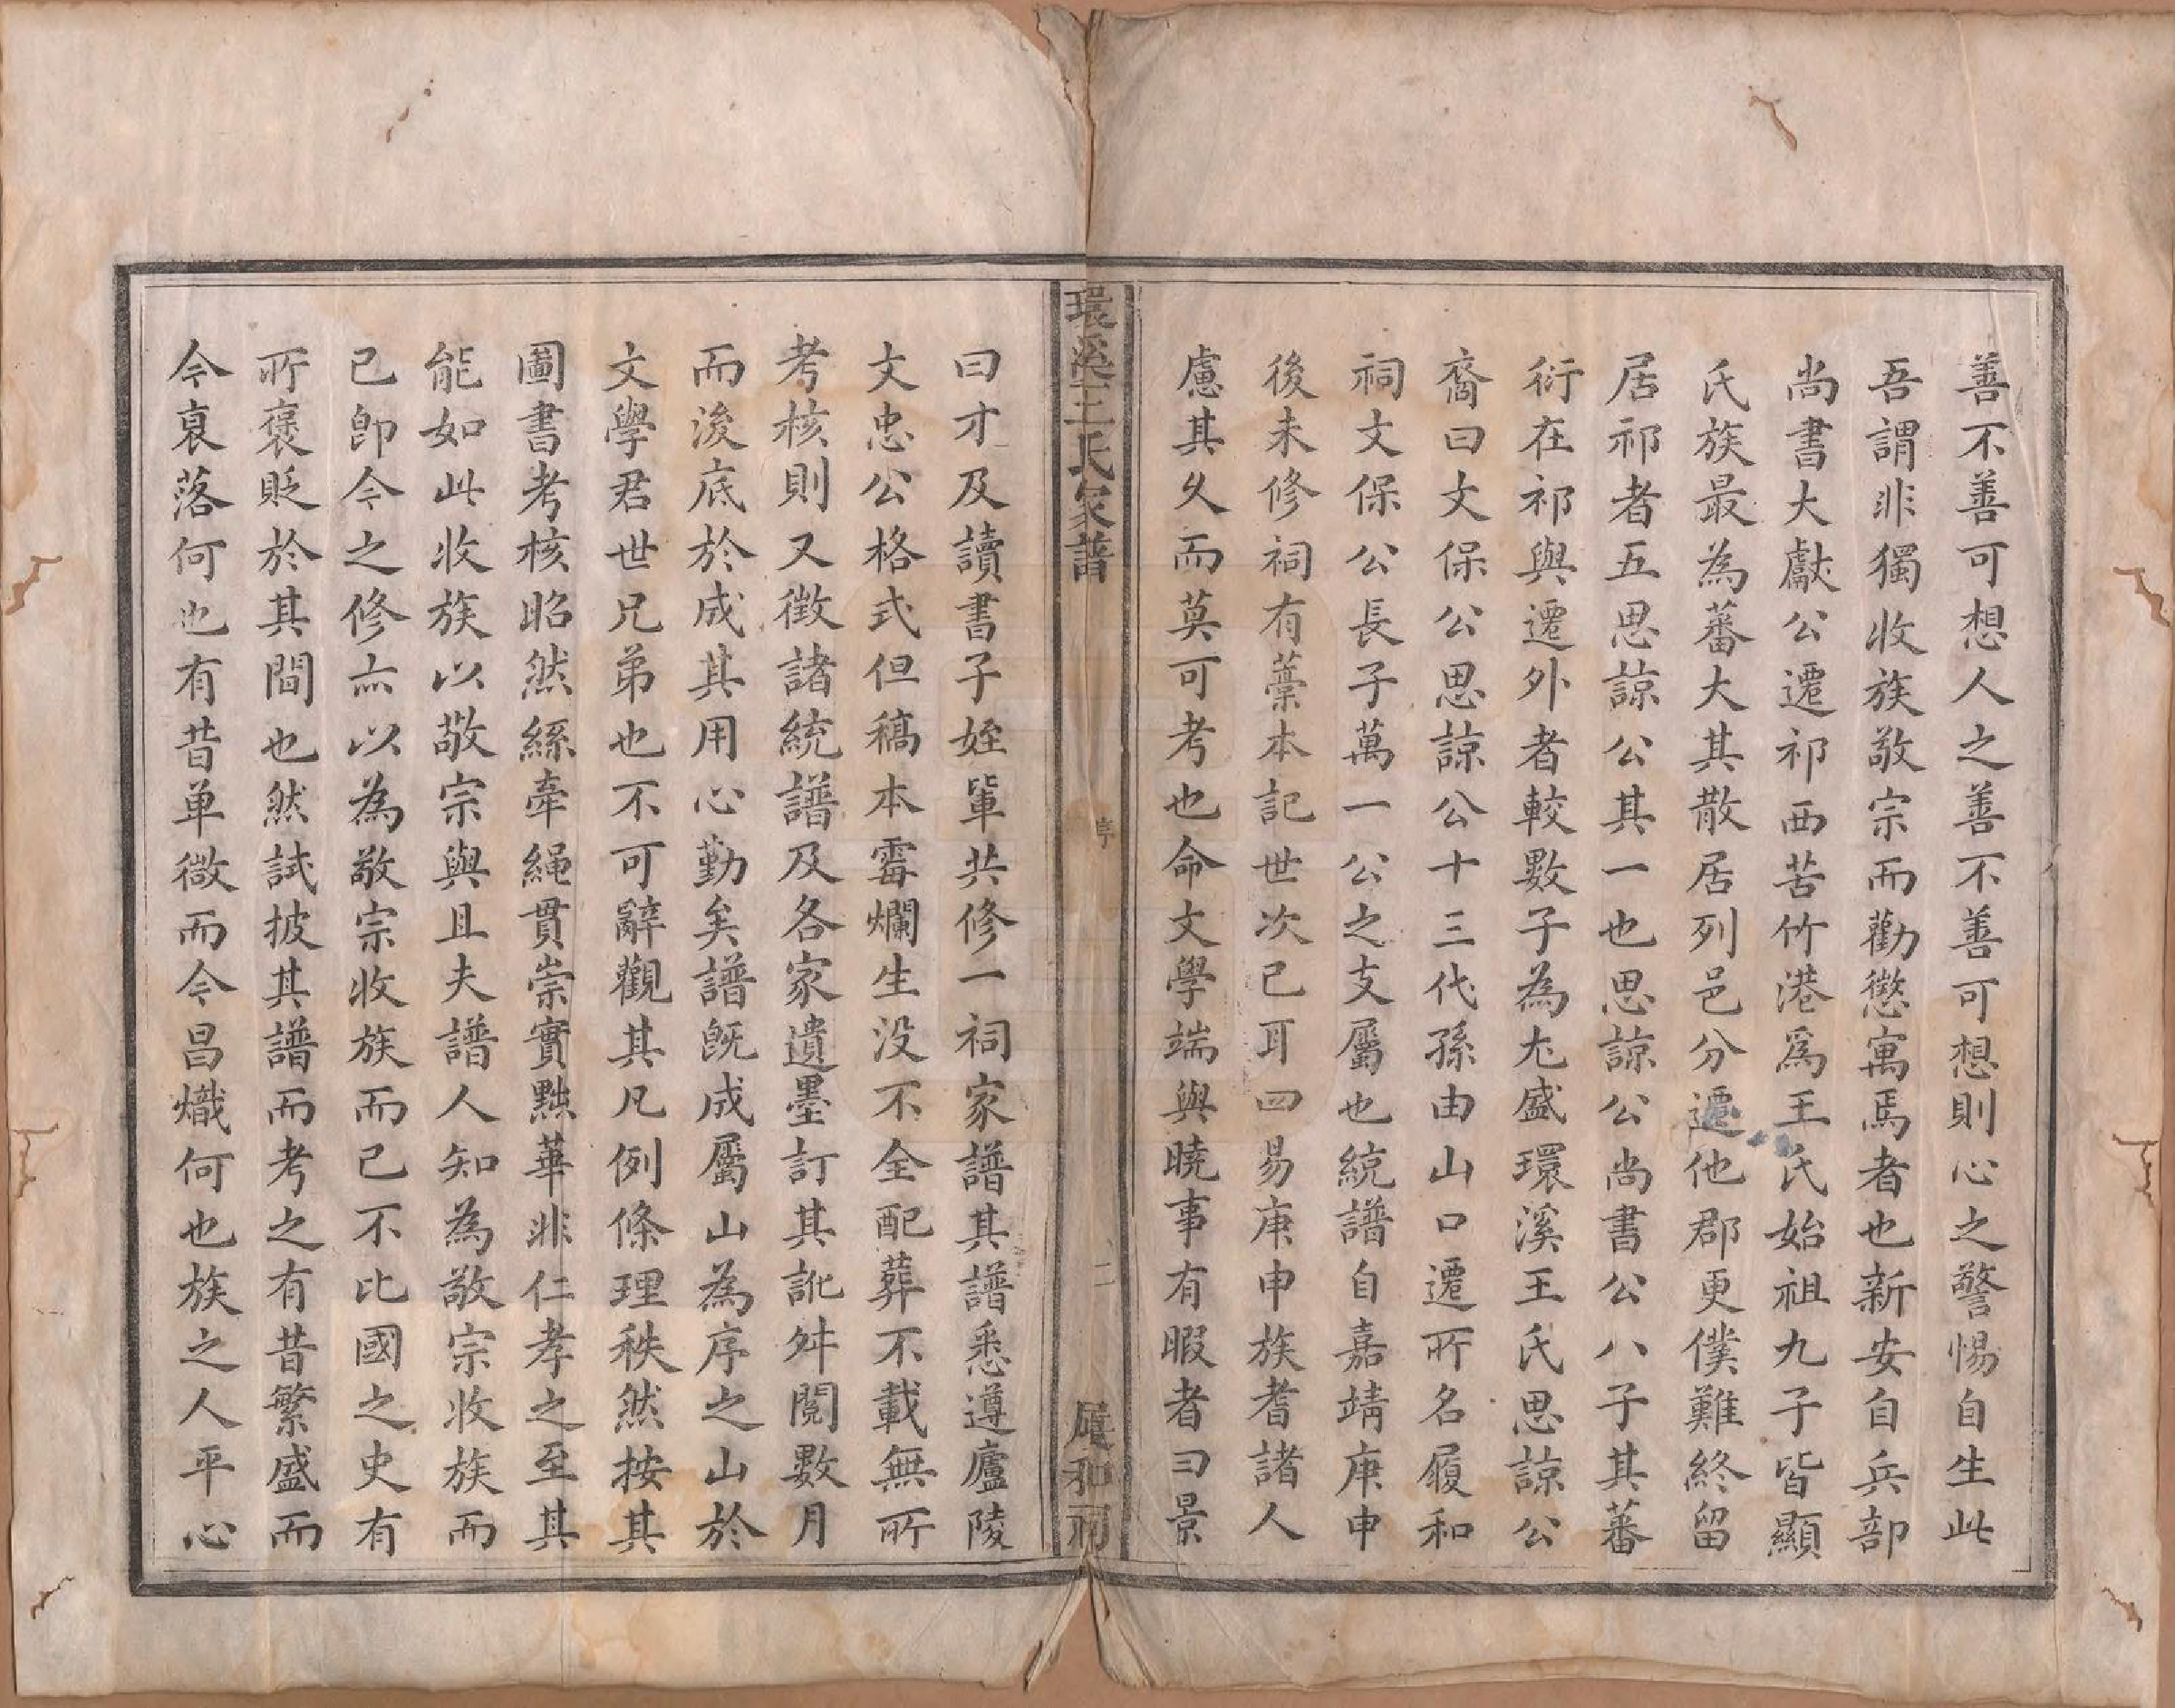 善不善可想人之善不善可想則心之警惕自生此
吾謂非獨收族敬宗而勸懲寓焉者也新安自兵部
尚書大獻公遷祁西苦竹港爲王氏始祖九子皆顯
氏族最為蕃大其散居列邑分遷他郡更僕難終留
居祁者五思諒公其一也思諒公尚書公八子其蕃
衍在祁與遷外者較數子為尤盛環溪王氏思諒公
裔曰文保公思諒公十三代孫由山口遷所名履和
祠文保公長子萬一公之支屬也統譜自嘉靖庚申
後未修祠有藳本記世次已耳四易庚申族耆諸人
慮其久而莫可考也命文學端與曉事有暇者曰景
環溪王氏家譜
序
二
履和祠
曰才及讀書子姪軰共修一祠家譜其譜悉遵廬陵
文忠公格式但稿本霉爛生没不全配葬不載無所
考核則又徴諸統譜及各家遺墨訂其訛舛閱數月
而浚底於成其用心勤矣譜既成屬山為序之山於
文學君世兄弟也不可辭觀其凡例條理秩然按其
圖書考核昭然絲牽繩貫崇實黜華非仁孝之至其
能如此收族以敬宗與且夫譜人知為敬宗收族而
已卽今之修亦以為敬宗收族而已不比國之史有
所褒貶於其間也然試披其譜而考之有昔繁盛而
今衰落何也有昔单微而今昌熾何也族之人平心